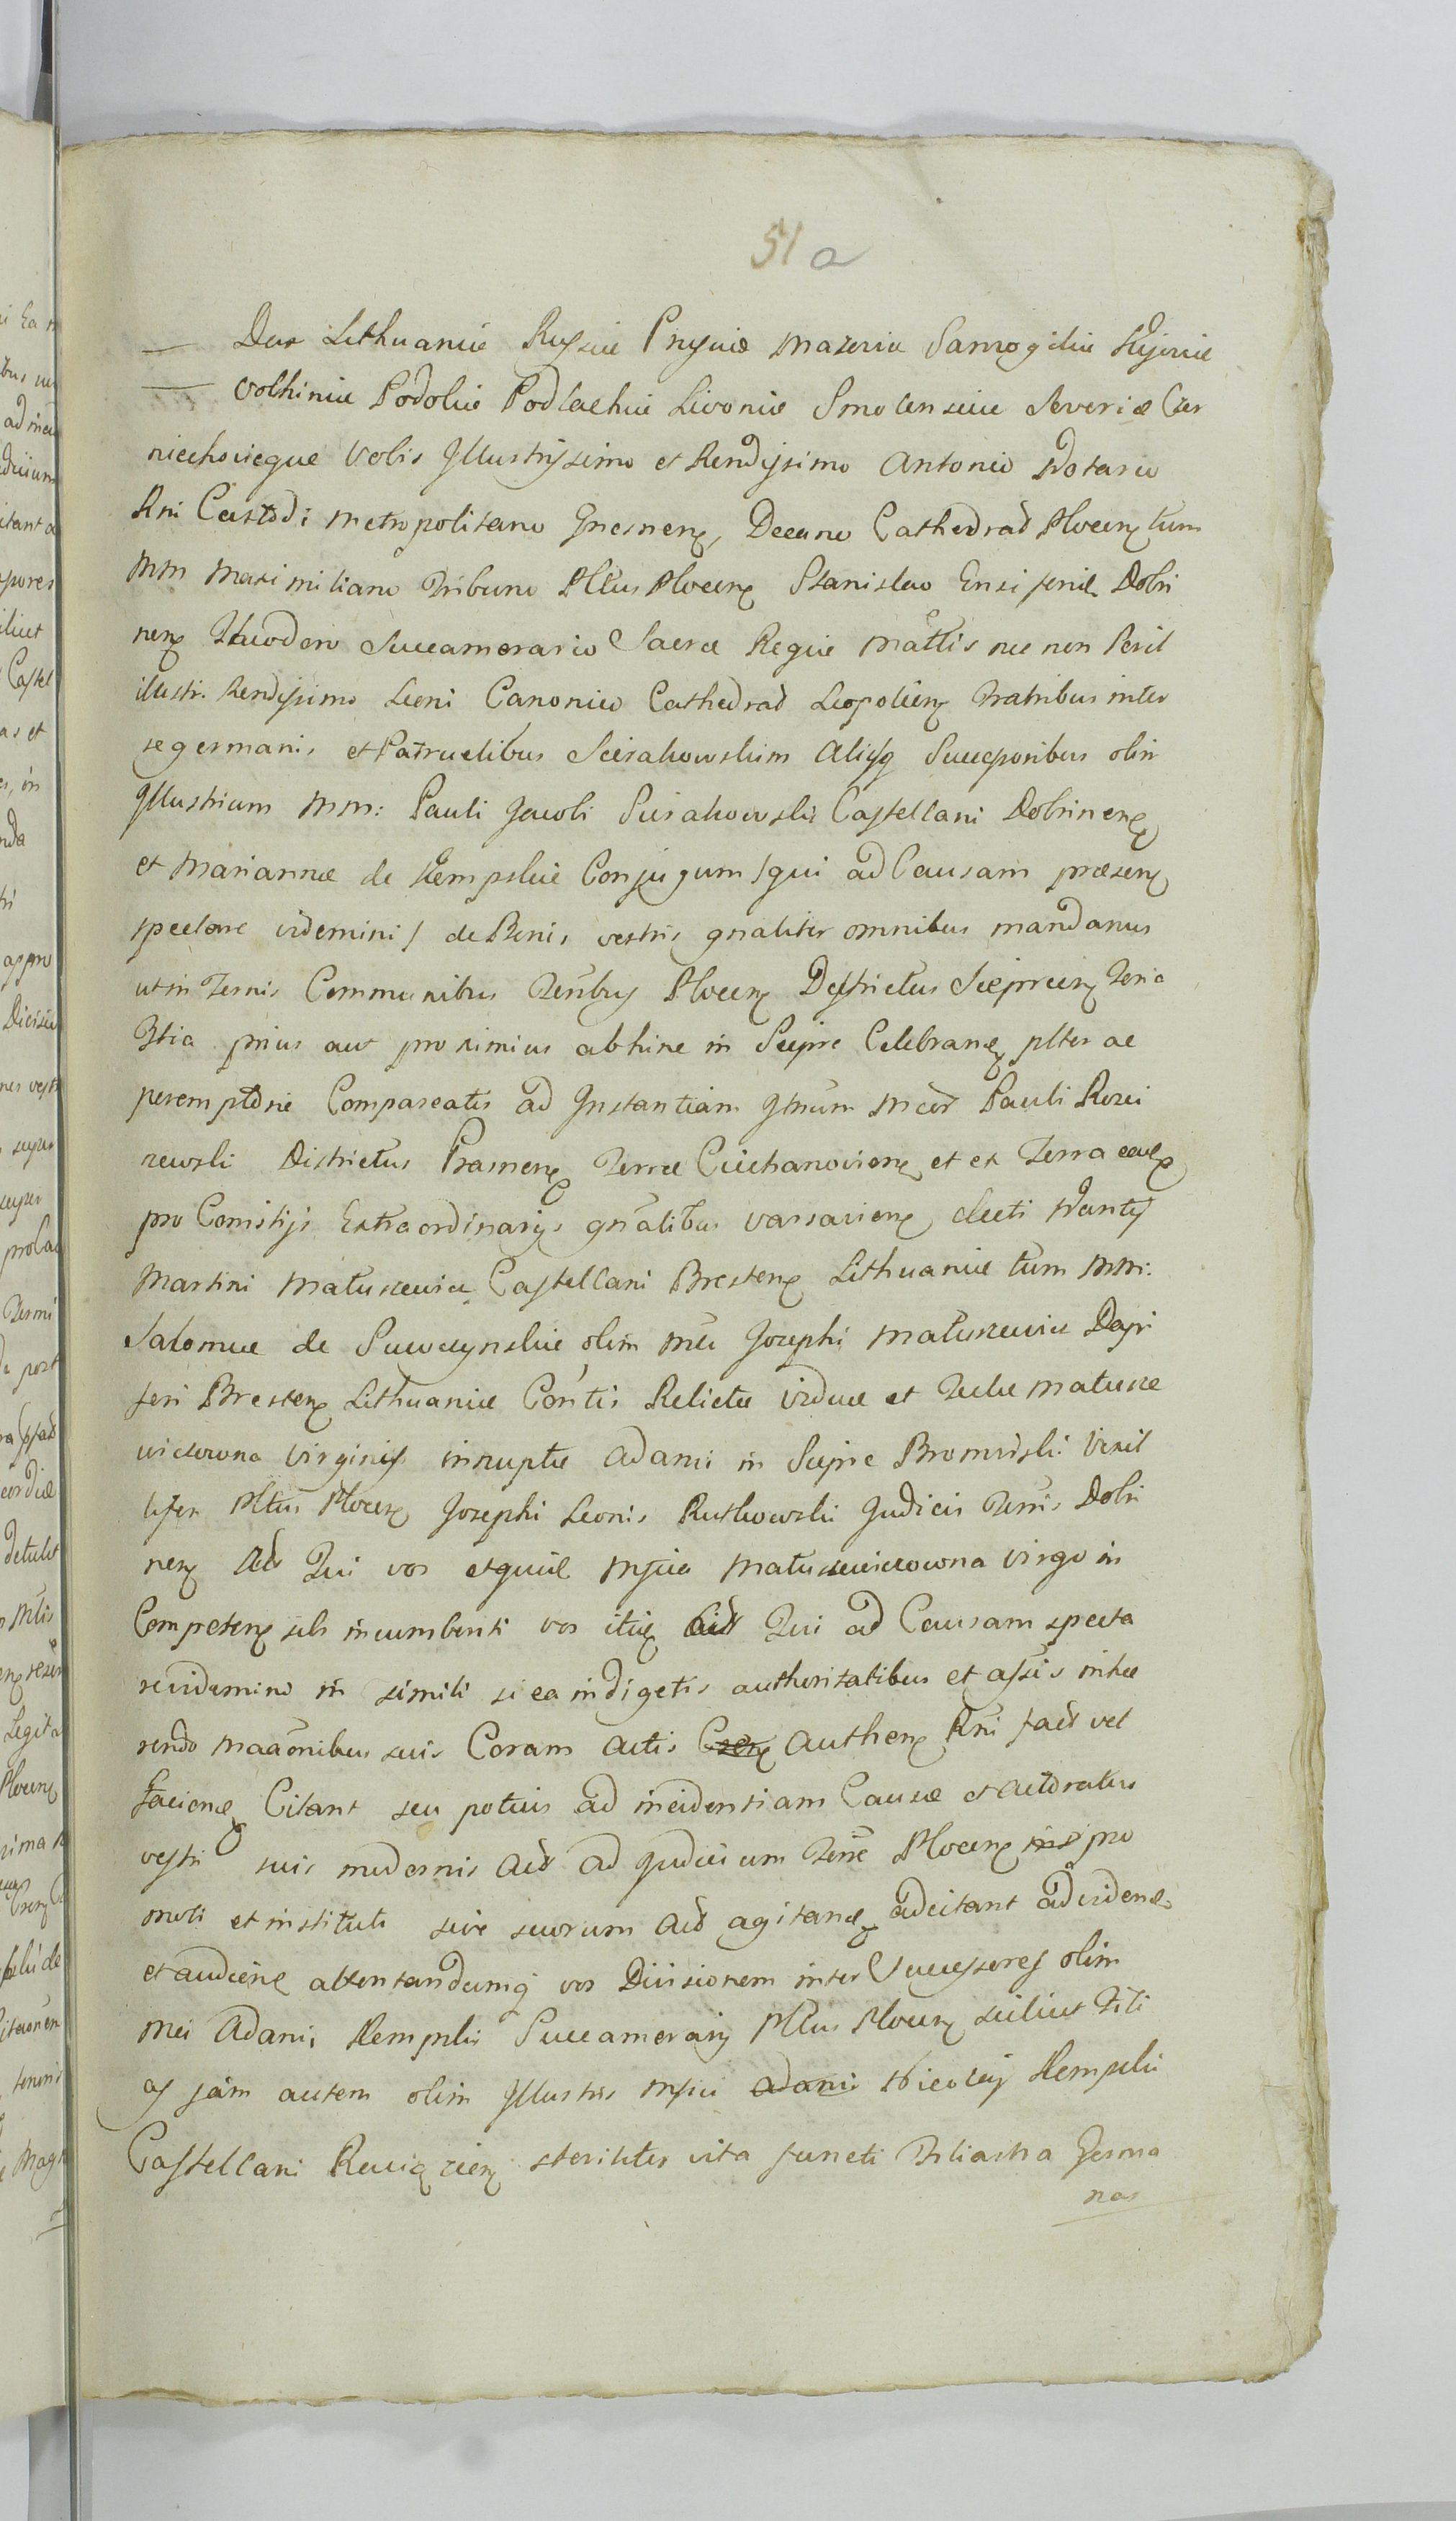 51 a
Dux Lithuaniæ Russiæ Prussiæ Mazoviæ Samogitiæ Kijoviæ
Volhiniæ Podoliæ Podlachiæ Livoniæ Smolensciæ Severiæ Czer
niechoviæque Vobis Illustrissimo et Rendissimo Antonio Notario
Rni Custodi Metropolitano Gnesnen, Decano Cathedrad Plocen tum
MM Maximiliano Tribuno Pltus Plocen Stanislao Ensifero Dobri
nen Theodoro Succamerario Sacræ Regiæ Mattis nec non Peril
illustr. Rendissimo Leoni Canonico Cathedrad Leopolien Fratribus inter
se germanis et Patruelibus Sierakowskim Alijsq Successoribus olim
Illustrium MM: Pauli Jacobi Sierakowski Castellani Dobrinen
et Mariannæ de Kempskie Conjugum /qui ad Causam præsen
spectare videmini/ de Benis vestris gnaliter omnibus mandamus
ut in Termis Communibus Terribus Plocen Districtus Sieprcen
prius aut proximius abhinc in Sieprc Celebran plter ac
peremptorie Compareatis ad Instantiam Pauli
Districtus Prasnen Terræ Ciechanovien et ex Terra
pro Comitijs Extraordinarijs gnalibus Varsavien electi Nuntij
Martini Matuszewicz Castellani Bresten Lithuaniæ tum MM:
Salomeæ de Suwczynskie olim Josephi Matuszewicz Dapi
feri Bresten Lithuaniæ Contis Relictæ viduæ et Teclæ Matusze
wiczowna Virginis innuptæ Adami in Sieprc Bromirski Vexil
liferi Pltus Plocen Josephi Leonis Rutkowski Judicis Terris Dobri
nen Act Qui vos Matuszewiczowna virgo in
Competen sibi incumbenti vos Qui ad Causam specta
re videmini in simili si ea indigetis authoritatibus et assis inhæ
rendo suis Coram Actis authen Rni fact vel
facien Citant seu potius ad incidentiam Causæ et
vestri suis modernis Act ad Judicium Plocen pro
moti et instituti sive suorum Act agitan adcitant ad viden
et audien attentandumq vos Divisionem inter Successores olim
Mci Adami Kempski Succamerarij Pltus Plocen scilicet Fili
as jam autem olim Illustris Mfici Adami Nicolai Kempski
Castellani steriliter vita functi Filiastra Germa
nas